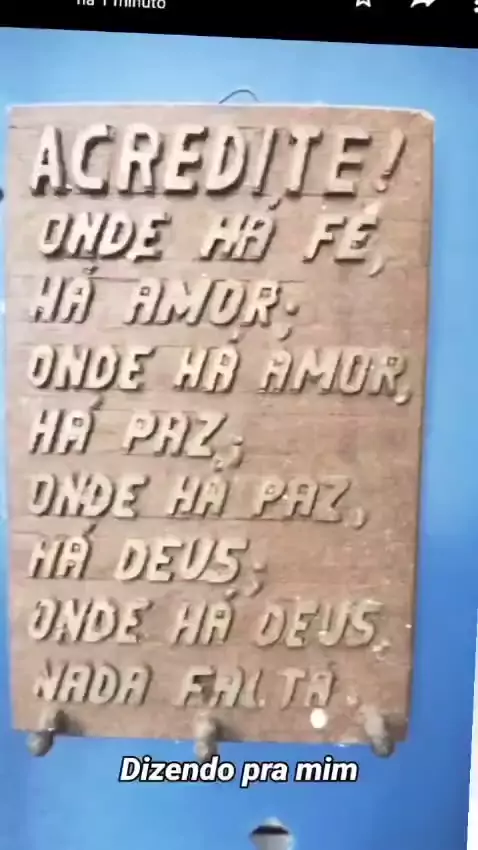 há 1 minuto
ACREDITE!
ONDE HÁ FÉ,
HÁ AMOR;
ONDE HÁ AMOR,
HÁ PAZ;
ONDE HÁ PAZ,
HÁ DEUS;
ONDE HÁ DEUS,
NADA FALTA.
Dizendo pra mim